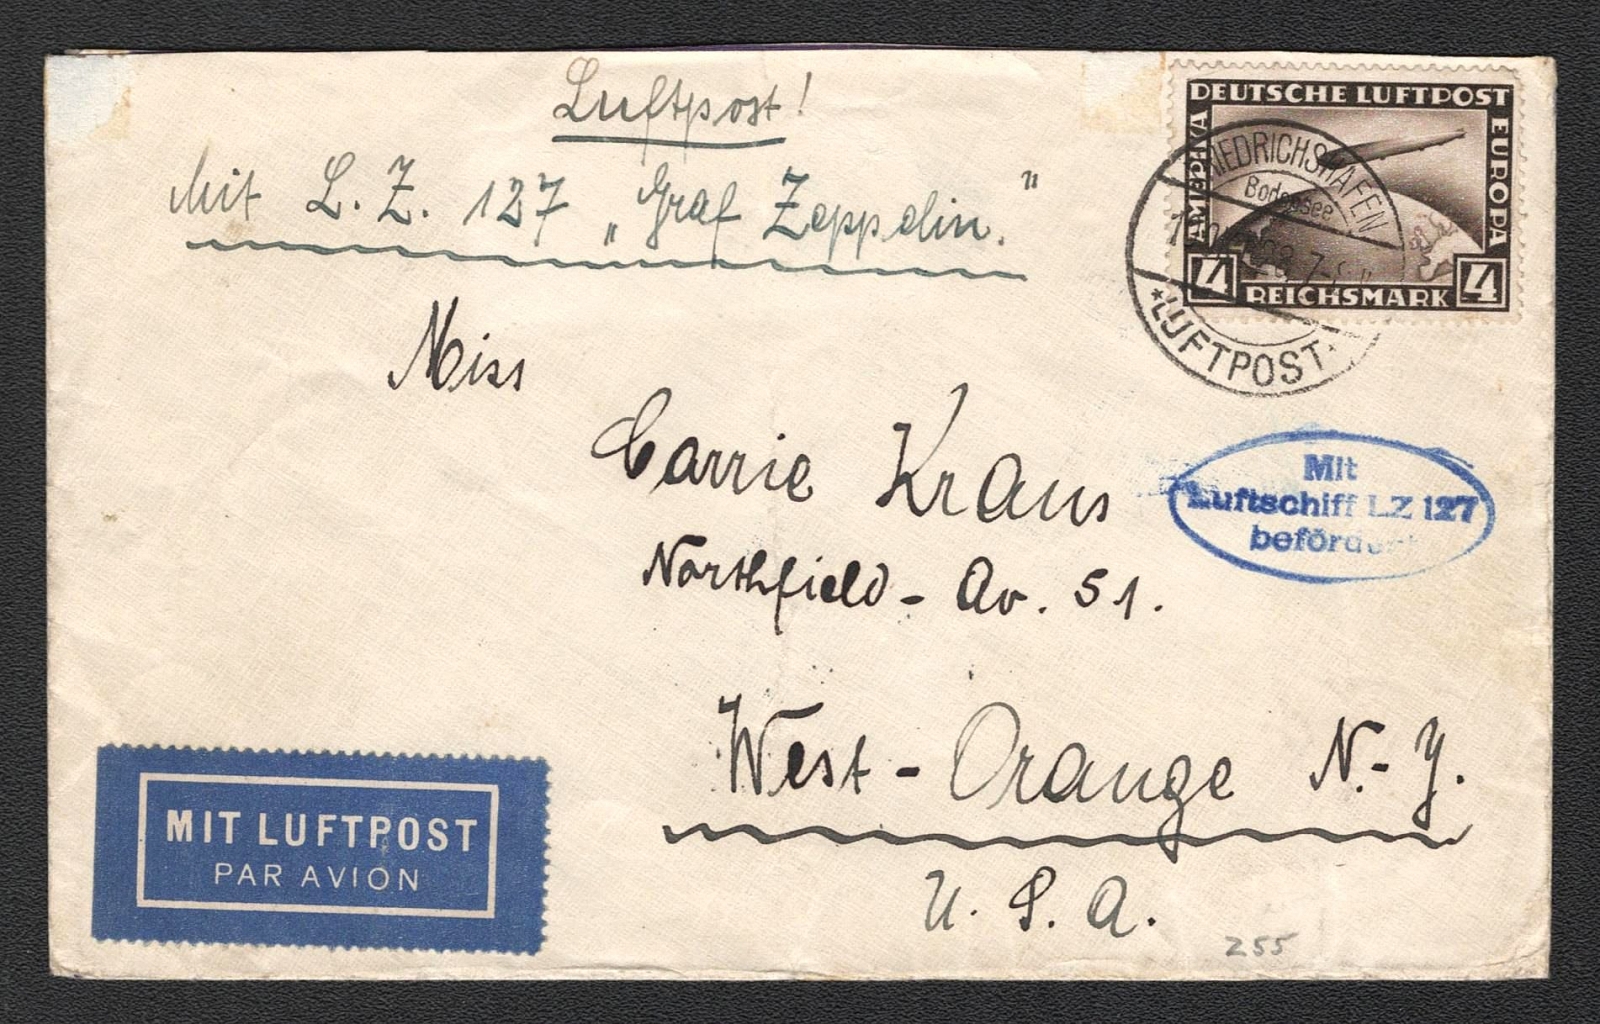 Luftpost!
Mit L. Z. 127 „Graf Zeppelin."
DEUTSCHE LUFTPOST
AMERIKA
EUROPA
4 REICHSMARK 4
FRIEDRICHSHAFEN
Bodensee
*LUFTPOST*
Miss
Carrie Kraus
Northfield - Av. 51.
West - Orange N.- Y.
U. S. A.
Mit
Luftschiff LZ 127
befördert
MIT LUFTPOST
PAR AVION
255